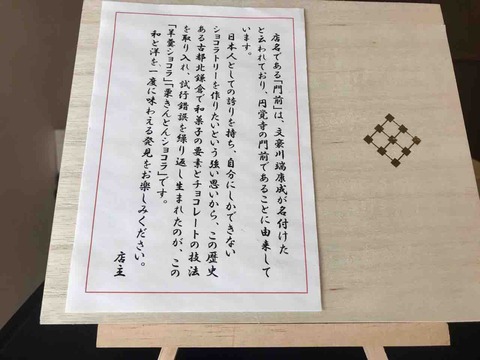 店名である「門前」は、文豪川端康成が名付けた
と云われており、円覚寺の門前であることに由来して
います。
日本人としての誇りを持ち、自分にしかできない
ショコラトリーを作りたいという強い思いから、この歴史
ある古都北鎌倉で和菓子の要素とチョコレートの技法
を取り入れ、試行錯誤を繰り返し生まれたのが、この
「羊羹ショコラ」「栗きんとんショコラ」です。
和と洋を一度に味わえる発見をお楽しみください。
店主